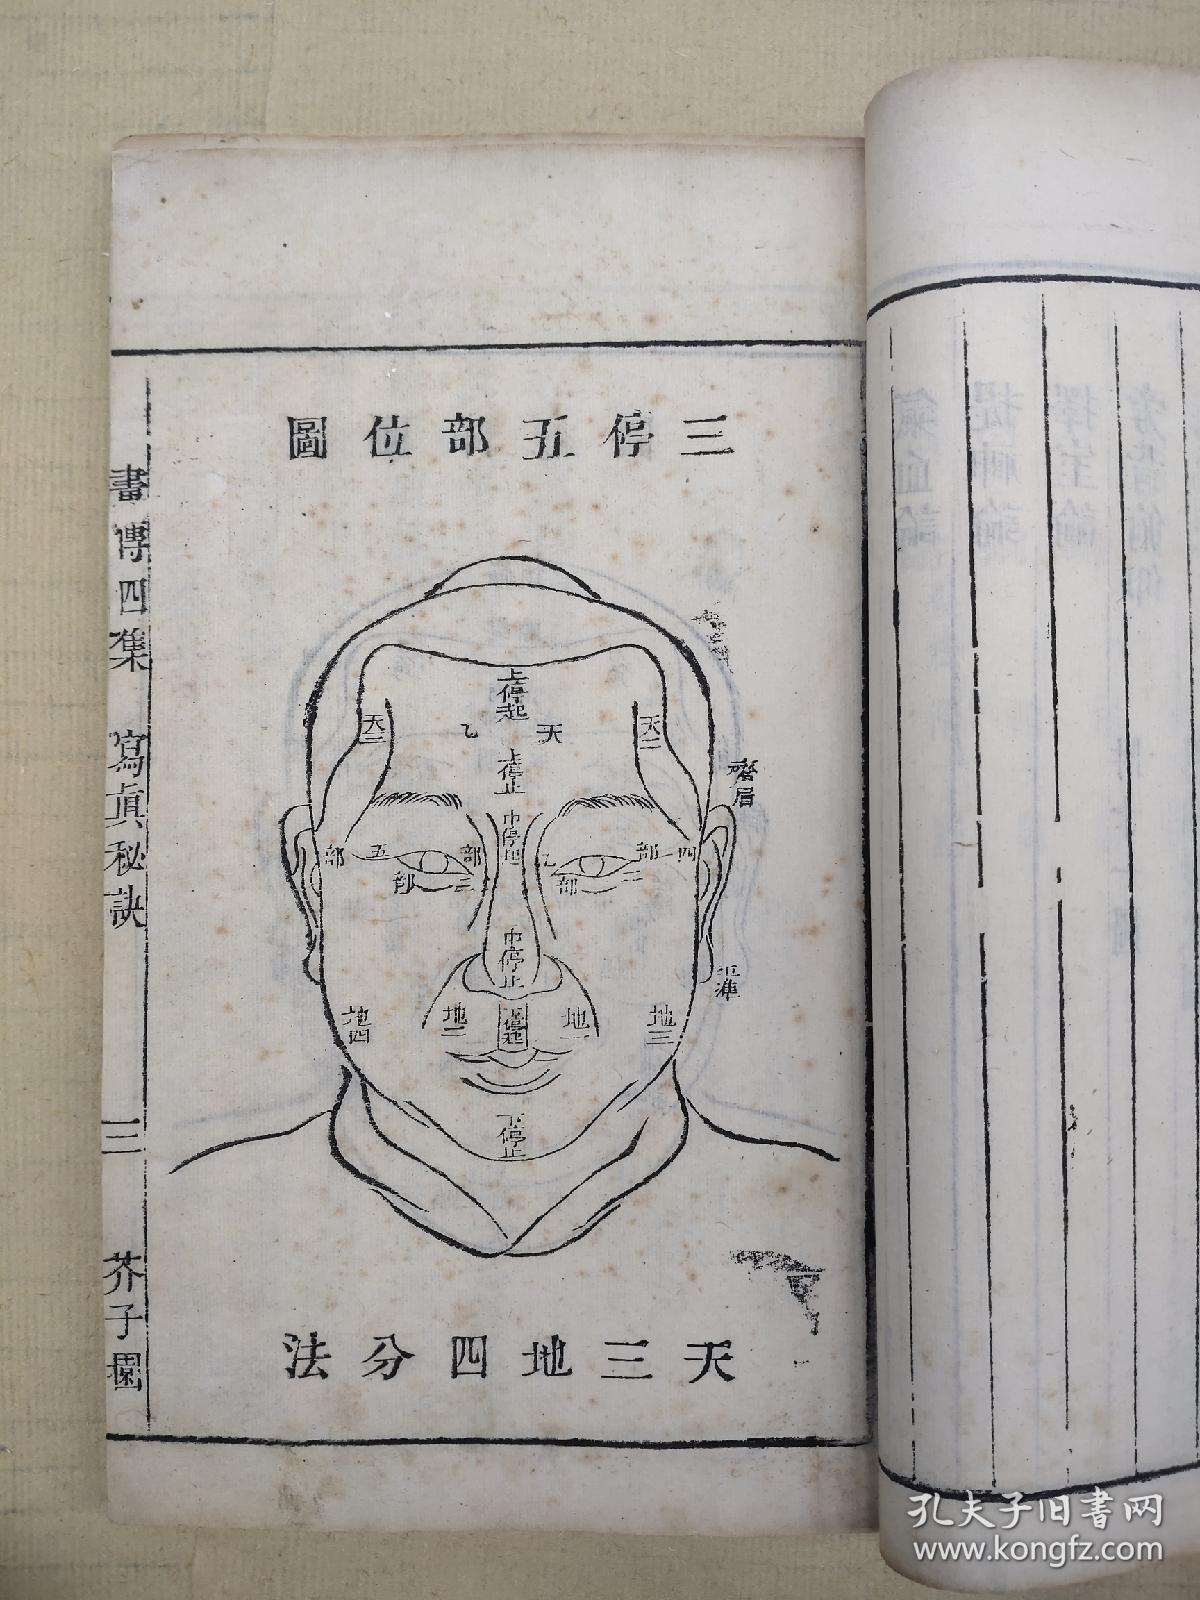 三停五部位圖
上停起
天二
乙
天
天三
上停止
齊眉
中停起
部五
部三
乙部
部二
四
中停止
平準
地四
地二
下停起
地一
地三
下停止
天三地四分法
畫傳四集 寫眞秘訣 三 芥子園
孔夫子旧书网
www.kongfz.com